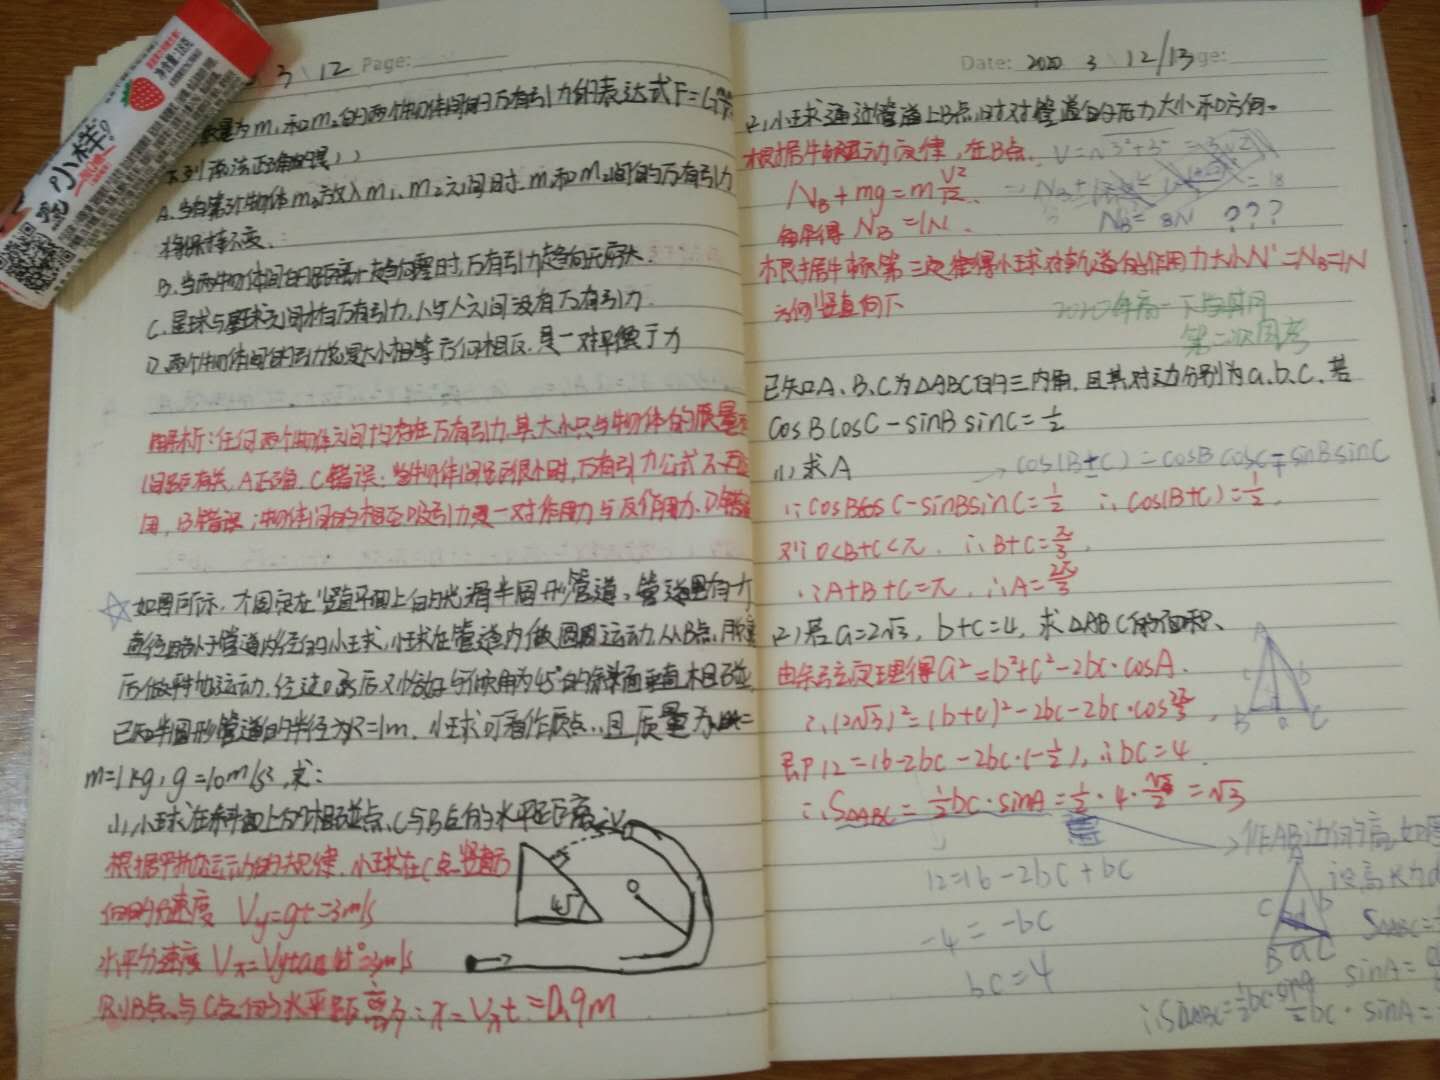 小样
净含量:18克
3 \ 12 Page:
质量为m₁和m₂的两个物体间的万有引力的表达式F=G
下列说法正确的是( )
A.当有第3个物体m₃放入m₁、m₂之间时,m₁和m₂间的万有引力
将保持不变.
B.当两物体间的距离r趋向零时,万有引力趋向无穷大.
C.星球与星球之间才有万有引力,人与人之间没有万有引力.
D.两个物体间的引力总是大小相等方向相反,是一对平衡力
解析:任何两个物体之间均存在万有引力,其大小只与物体的质量
间距有关,A正确,C错误;当物体间距离很小时,万有引力公式不再
用,B错误;物体间的相互吸引力是一对作用力与反作用力,D错误
☆如图所示,才固定在竖直平面上的光滑半圆形管道,管道里有一个
直径略小于管道内径的小球,小球在管道内做圆周运动,从B点
后做平抛运动,经过0.3s后又恰好与倾角为45°的斜面垂直相碰
已知半圆形管道的半径为R=1m,小球可看作质点,且质量为
m=1kg,g=10m/s²,求:
(1)小球在斜面上的相碰点C与B点的水平距离
根据平抛运动的规律,小球在C点竖直方
向的分速度 Vy=gt=3m/s
水平分速度 Vx=Vytan45°=3m/s
则B点与C点的水平距离为:x=Vxt=0.9m
45°
O
Date: 2020 3 12/13
(2)小球通过管道上B点时对管道的压力大小和方向。
根据牛顿运动定律,在B点. V=√3²+3²=3√2
N_B+mg=m V²/R.
解得 N_B=1N. N_B= 8N ???
根据牛顿第三定律得小球对轨道的作用力大小N'=N_B=1N
方向竖直向下
2020年高一下学期
第二次周考
已知A、B、C为△ABC的三内角,且其对边分别为a.b.c.若
cosBcosC-sinBsinC=1/2
(1)求A
→cos(B±C)=cosBcosC∓sinBsinC
∵cosBcosC-sinBsinC=1/2 ∴cos(B+C)=1/2.
又∵0<B+C<π. ∴B+C=π/3.
∵A+B+C=π. ∴A=2π/3
(2)若a=2√3,b+c=4,求△ABC的面积、
由余弦定理得a²=b²+c²-2bc·cosA.
∴(2√3)²=(b+c)²-2bc-2bc·cos2π/3.
即12=16-2bc-2bc·(-1/2),∴bc=4.
∴S△ABC=1/2bc·sinA=1/2·4·√3/2=√3
A
c b
B a C
作AB边的高,如图
设高长为d
12=16-2bc+bc
-4=-bc
bc=4
A
c d b
B a C
S△ABC=
sinA=
∴S△ABC=1/2bc·
1/2bc·sinA=